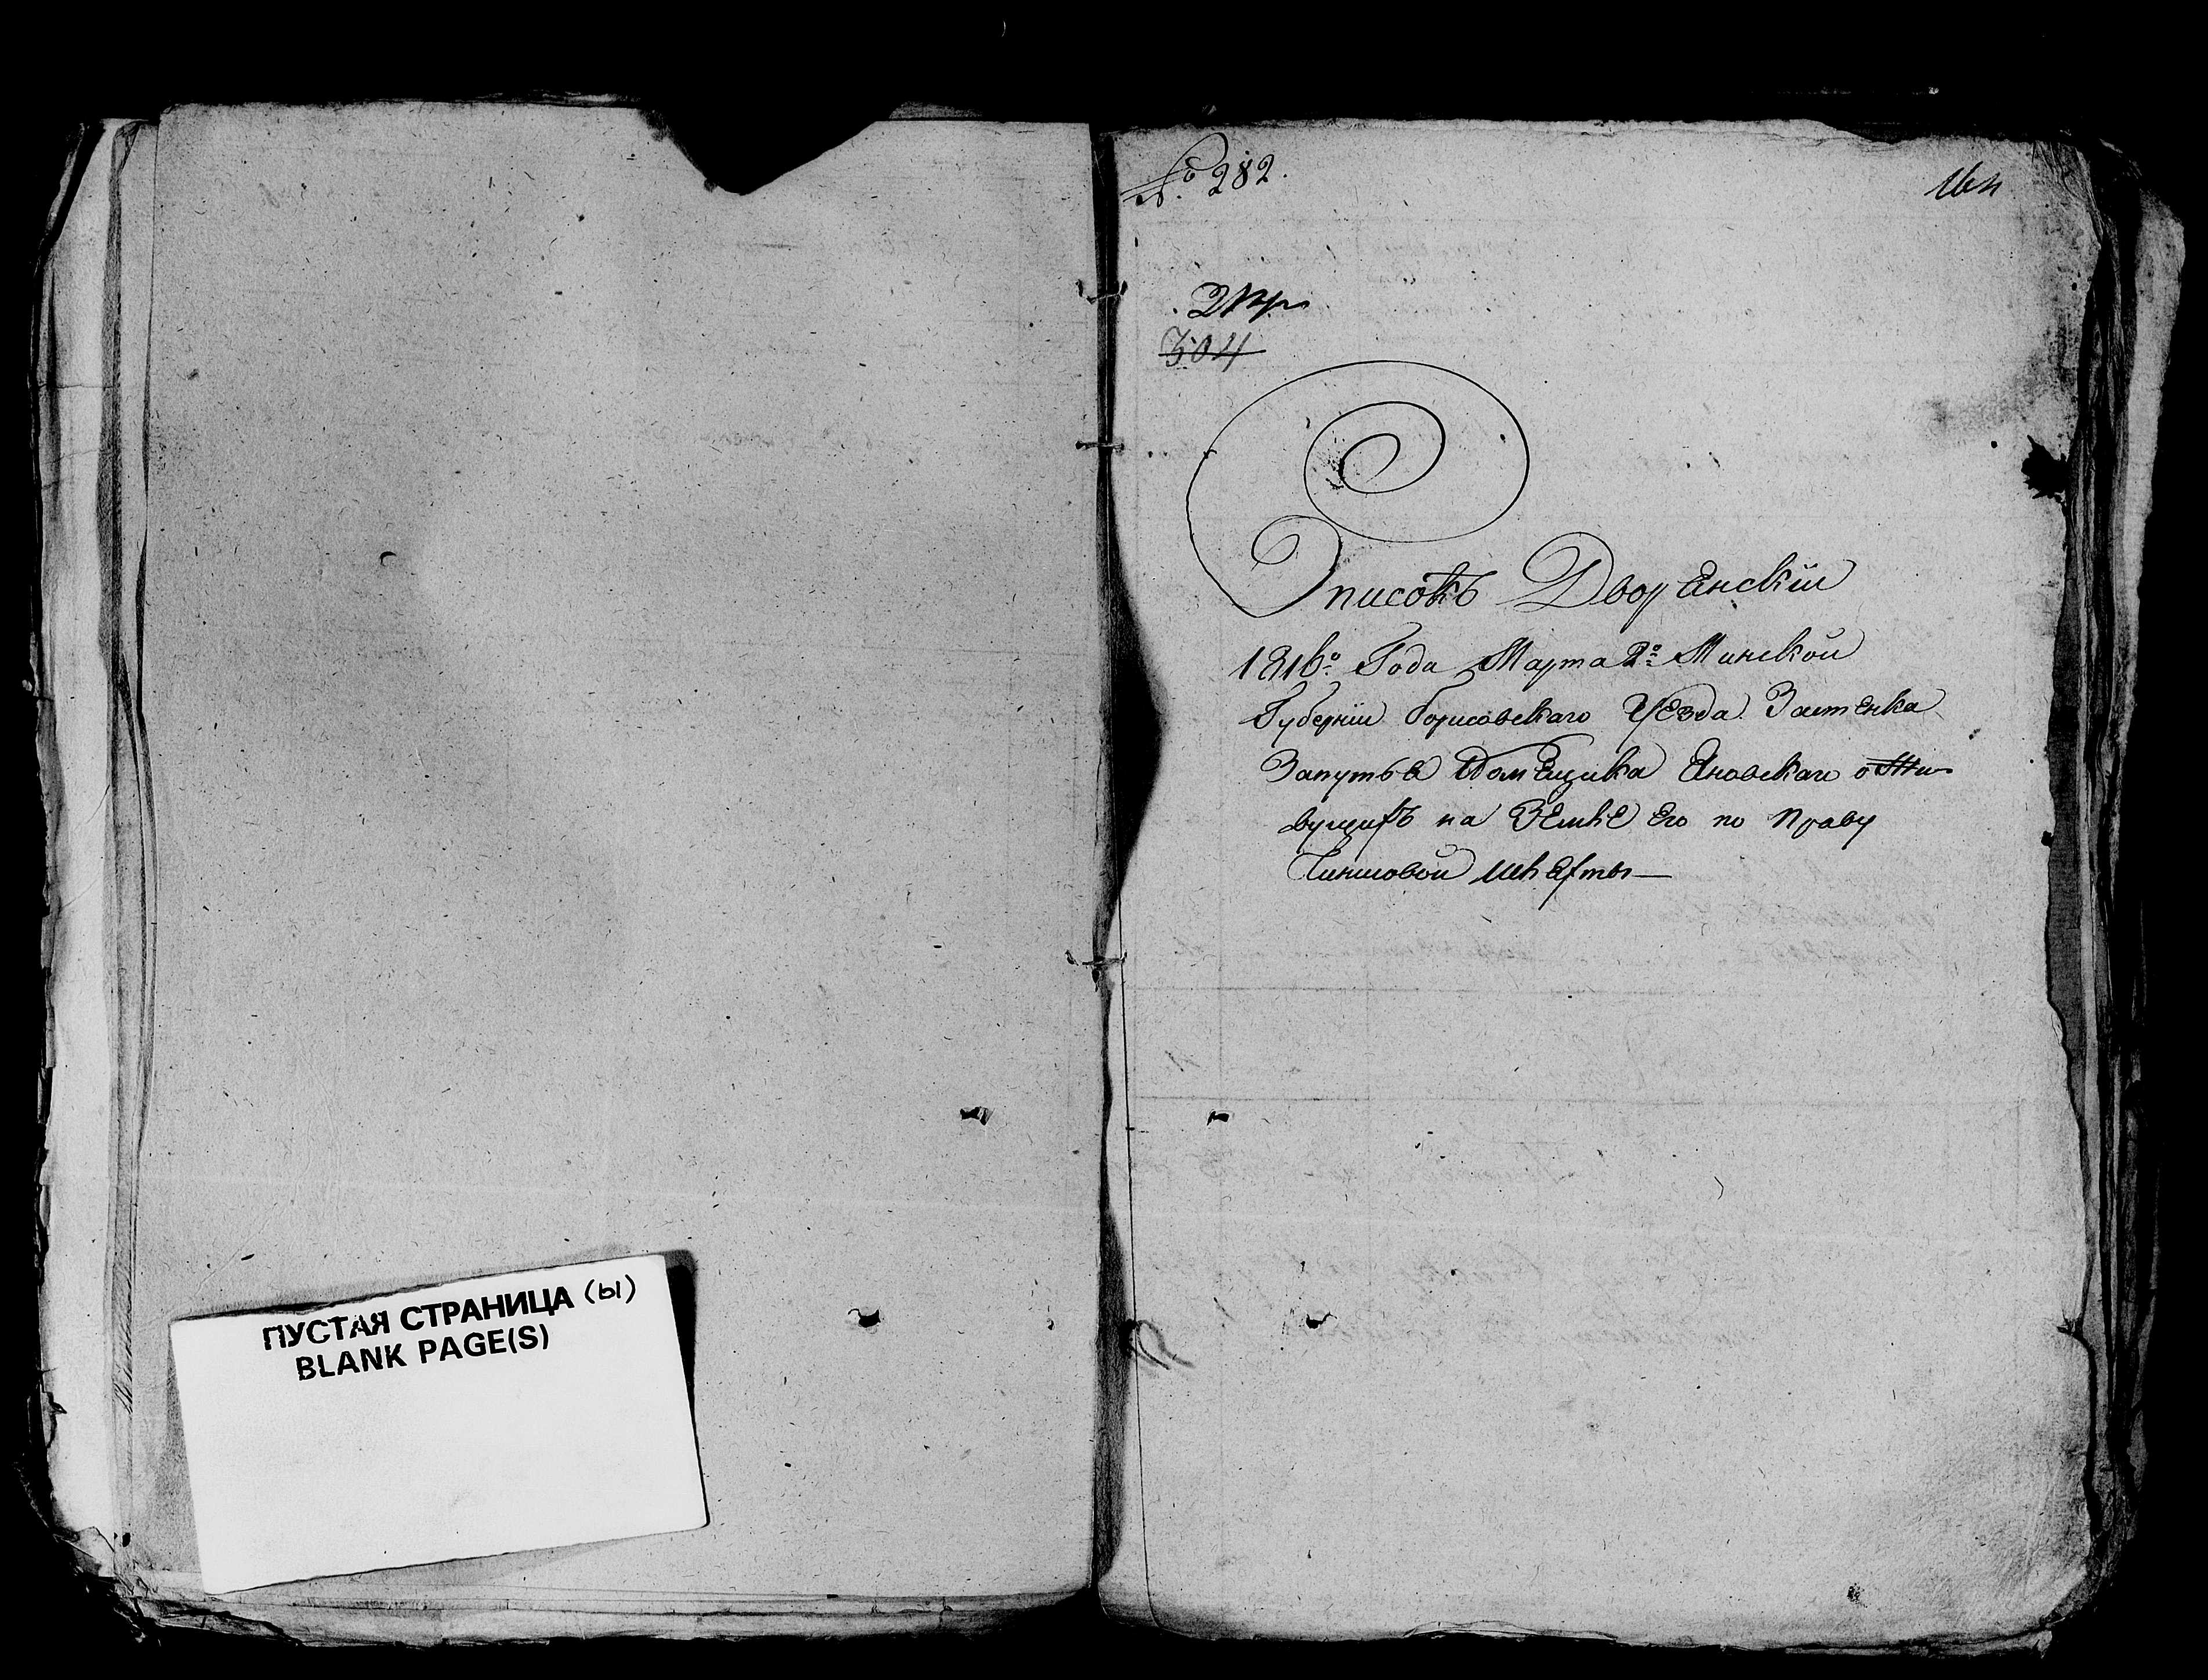 ПУСТАЯ СТРАНИЦА (ы)
BLANK PAGE(S)
№ 282.
304
Списокъ Дворенскіи
1816º Года Марта 2º Минской
Губерніи Борисовскаго Уезда Застенка
Запутье Помещика Еновскаго о Жи-
вущихъ на Земле Его по Праву
Чиншовой шнехты—